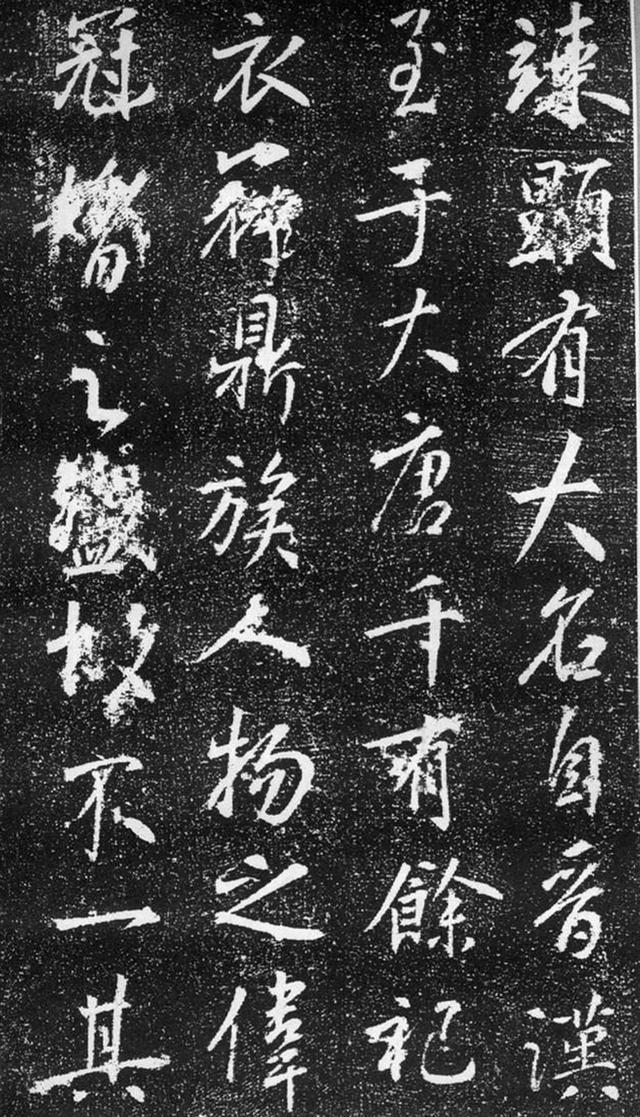 竦顯有大名自晉漢
至于大唐千有餘祀
衣鼎族人物之偉
冠婚之盛故不一其